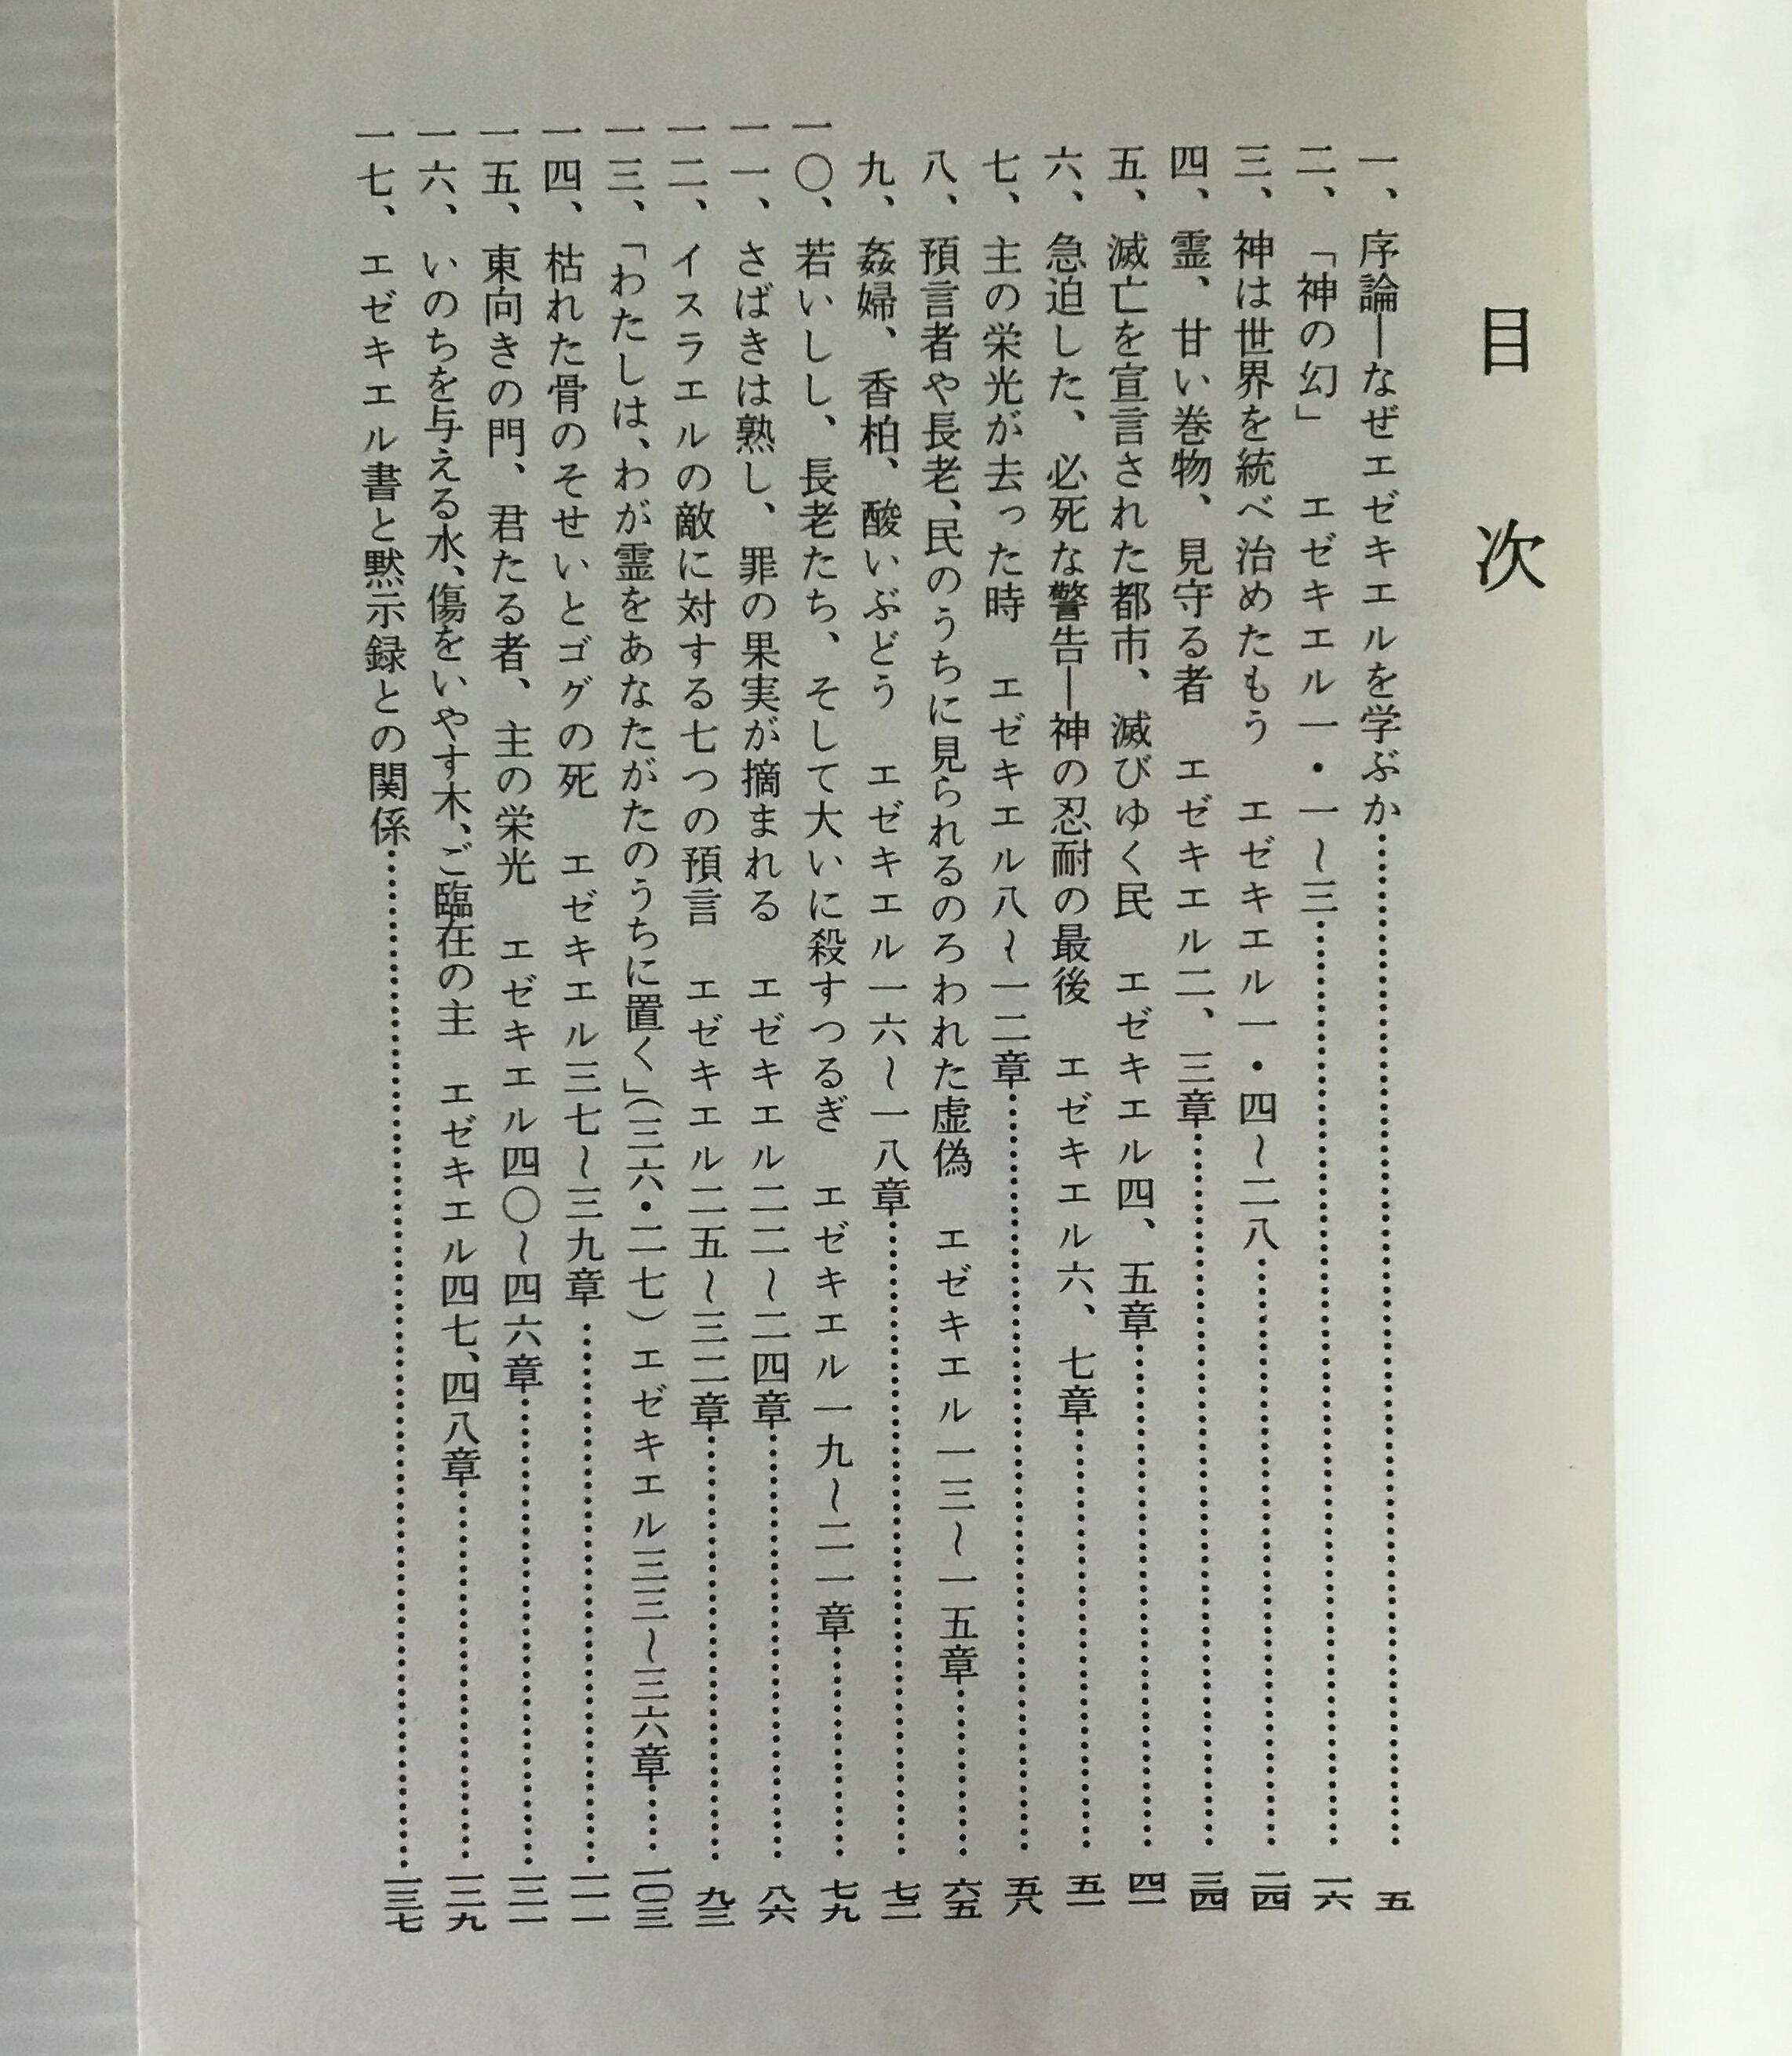 目次
一、序論―なぜエゼキエルを学ぶか……………………五
二、「神の幻」　エゼキエル一・一～三……………………一六
三、神は世界を統べ治めたもう　エゼキエル一・四～二八……………………二四
四、霊、甘い巻物、見守る者　エゼキエル二、三章……………………三四
五、滅亡を宣言された都市、滅びゆく民　エゼキエル四、五章……………………四一
六、急迫した、必死な警告―神の忍耐の最後　エゼキエル六、七章……………………五一
七、主の栄光が去った時　エゼキエル八～一二章……………………五八
八、預言者や長老、民のうちに見られるのろわれた虚偽　エゼキエル一三～一五章……………………六五
九、姦婦、香柏、酸いぶどう　エゼキエル一六～一八章……………………七二
一〇、若いしし、長老たち、そして大いに殺すつるぎ　エゼキエル一九～二一章……………………七九
一一、さばきは熟し、罪の果実が摘まれる　エゼキエル二二～二四章……………………八六
一二、イスラエルの敵に対する七つの預言　エゼキエル二五～三二章……………………九三
一三、「わたしは、わが霊をあなたがたのうちに置く」（三六・二七）エゼキエル三三～三六章……一〇三
一四、枯れた骨のそせいとゴグの死　エゼキエル三七～三九章……………………一一一
一五、東向きの門、君たる者、主の栄光　エゼキエル四〇～四六章……………………一二一
一六、いのちを与える水、傷をいやす木、ご臨在の主　エゼキエル四七、四八章……………………一二九
一七、エゼキエル書と黙示録との関係……………………一三七